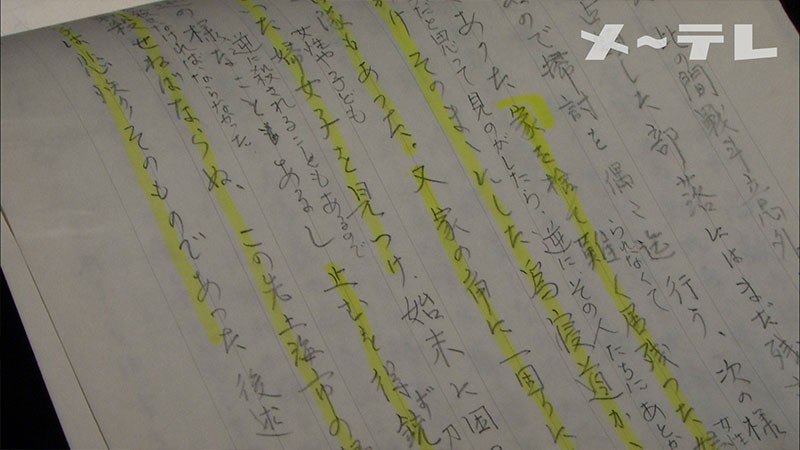 メ~テレ
此の間戦斗意外
した部落にはまだ残
ので掃討を偶々迄行う、次の様
られなくて
あった 家を捨て難く居残った
だと思って見のがしたら、逆に、その人たちにあとか
けてそのまゝにした為寝首か
隊もあった、又家の中に一固りに
女性や子ども
った婦女子を見つけ、始末に困
逆に殺されることもあるので
なことも あるし 止むを得ず銃
の様な
なければならなかった
殺せねばならぬ、この先上海市の
は悲惨そのものであった 後述